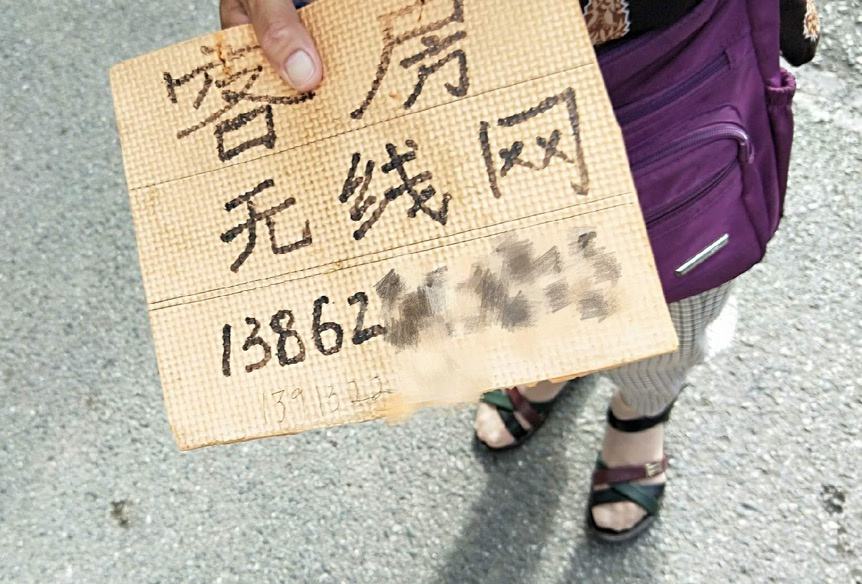 客房
无线网
13862
1391322